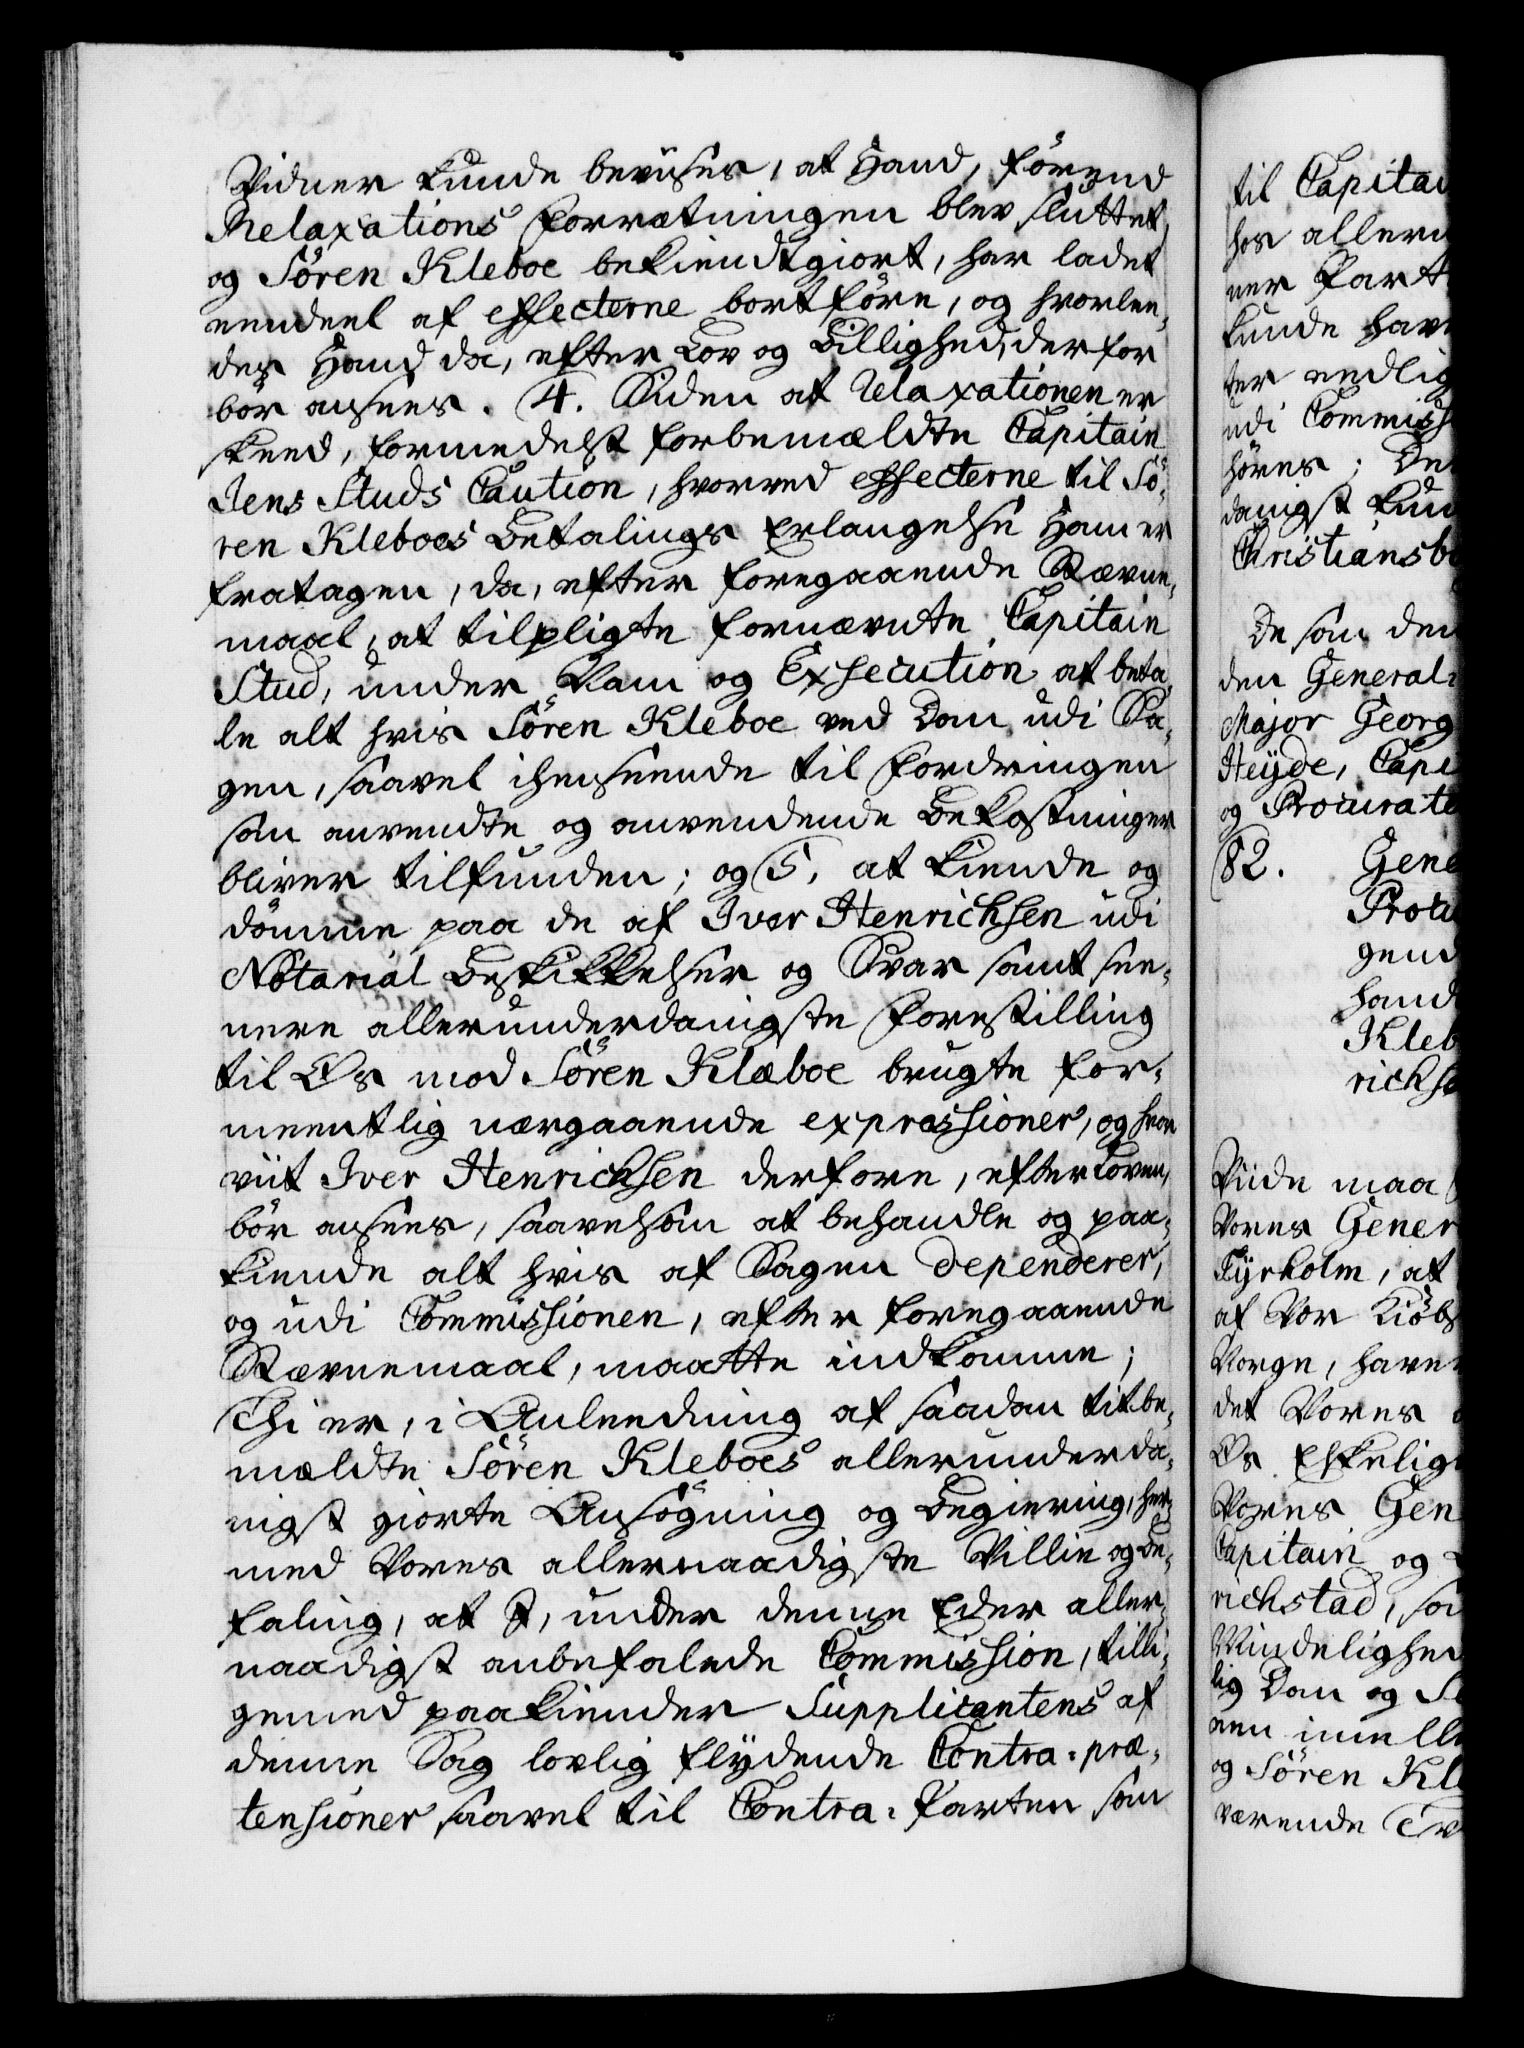 Vidner kunde bevises, at Hand, förend
Relaxations forretningen blev sluttet,
og Sören Kleboe bekiendtgiort, har ladet
eendeel af effecterne bortföre, og hvorlee,
des Hand da, efter Lov og Billighed, derfor
bör ansees. 4. Siden at Relaxationen er
skeed, formedelst forbemældte Capitain
Jens Studs Caution, hvorved effecterne til Sö,
ren Kleboes Betalings Erlangelse Ham er
fratagen, da, efter foregaaende Stævne,
maal, at tilpligte fornævnte Capitain
Stud, under Nam og Exsecution at beta,
le alt hvis Sören Kleboe ved Dom udi Sa,
gen, saavel ihenseende til fordringen
som anvendte og anvendende Bekostninger
bliver tilfunden; og 5. at kiende og
dömme paa de af Iver Henrichsen udi
Notarial Beskikkelser og Svar samt see,
nere allerunderdanigste forestilling
til Os mod Sören Klæboe brugte for-
meentlig nærgaaende expressioner, og hvor
viit Iver Henrichsen derfore, efter Loven,
bör ansees, saavelsom at behandle og paa,
kiende alt hvis af Sagen dependerer,
og udi Commissionen, efter foregaaende
Stævnemaal, maatte indkomme;
Thi er, i Anleedning af saadan titbe,
mældte Sören Kleboes allerunderda,
nigst giorte Ansögning og Begiering, her,
med Vores allernaadigste Villie og Be,
faling, at I, under denne Eder aller,
naadigst anbefalede Commission, tilli,
gemed paakiender Supplicantens af
denne Sag lovlig flÿdende Contra-præ,
tensioner, saavel til Contra-Parten som
til Capitai
hos alleru
ner Part
kunde hav
ter endlig
udi Commiss
höres; De
danigst kun
Christiansb
De som den
den General-
Major Georg
Heÿde, Capi
og Procurate
82. Gene
Procu
gend
hand
Kleb
richs
Viide maa
Vores Gener
Tÿrholm, at
af Vor Kiöbs
Norge, have
det Vores
Os Elskelig
Vores Gen
Capitain og
richstad, so
Mindelighed
lig Dom og S
nen imelle
og Sören Kle
værende Tv